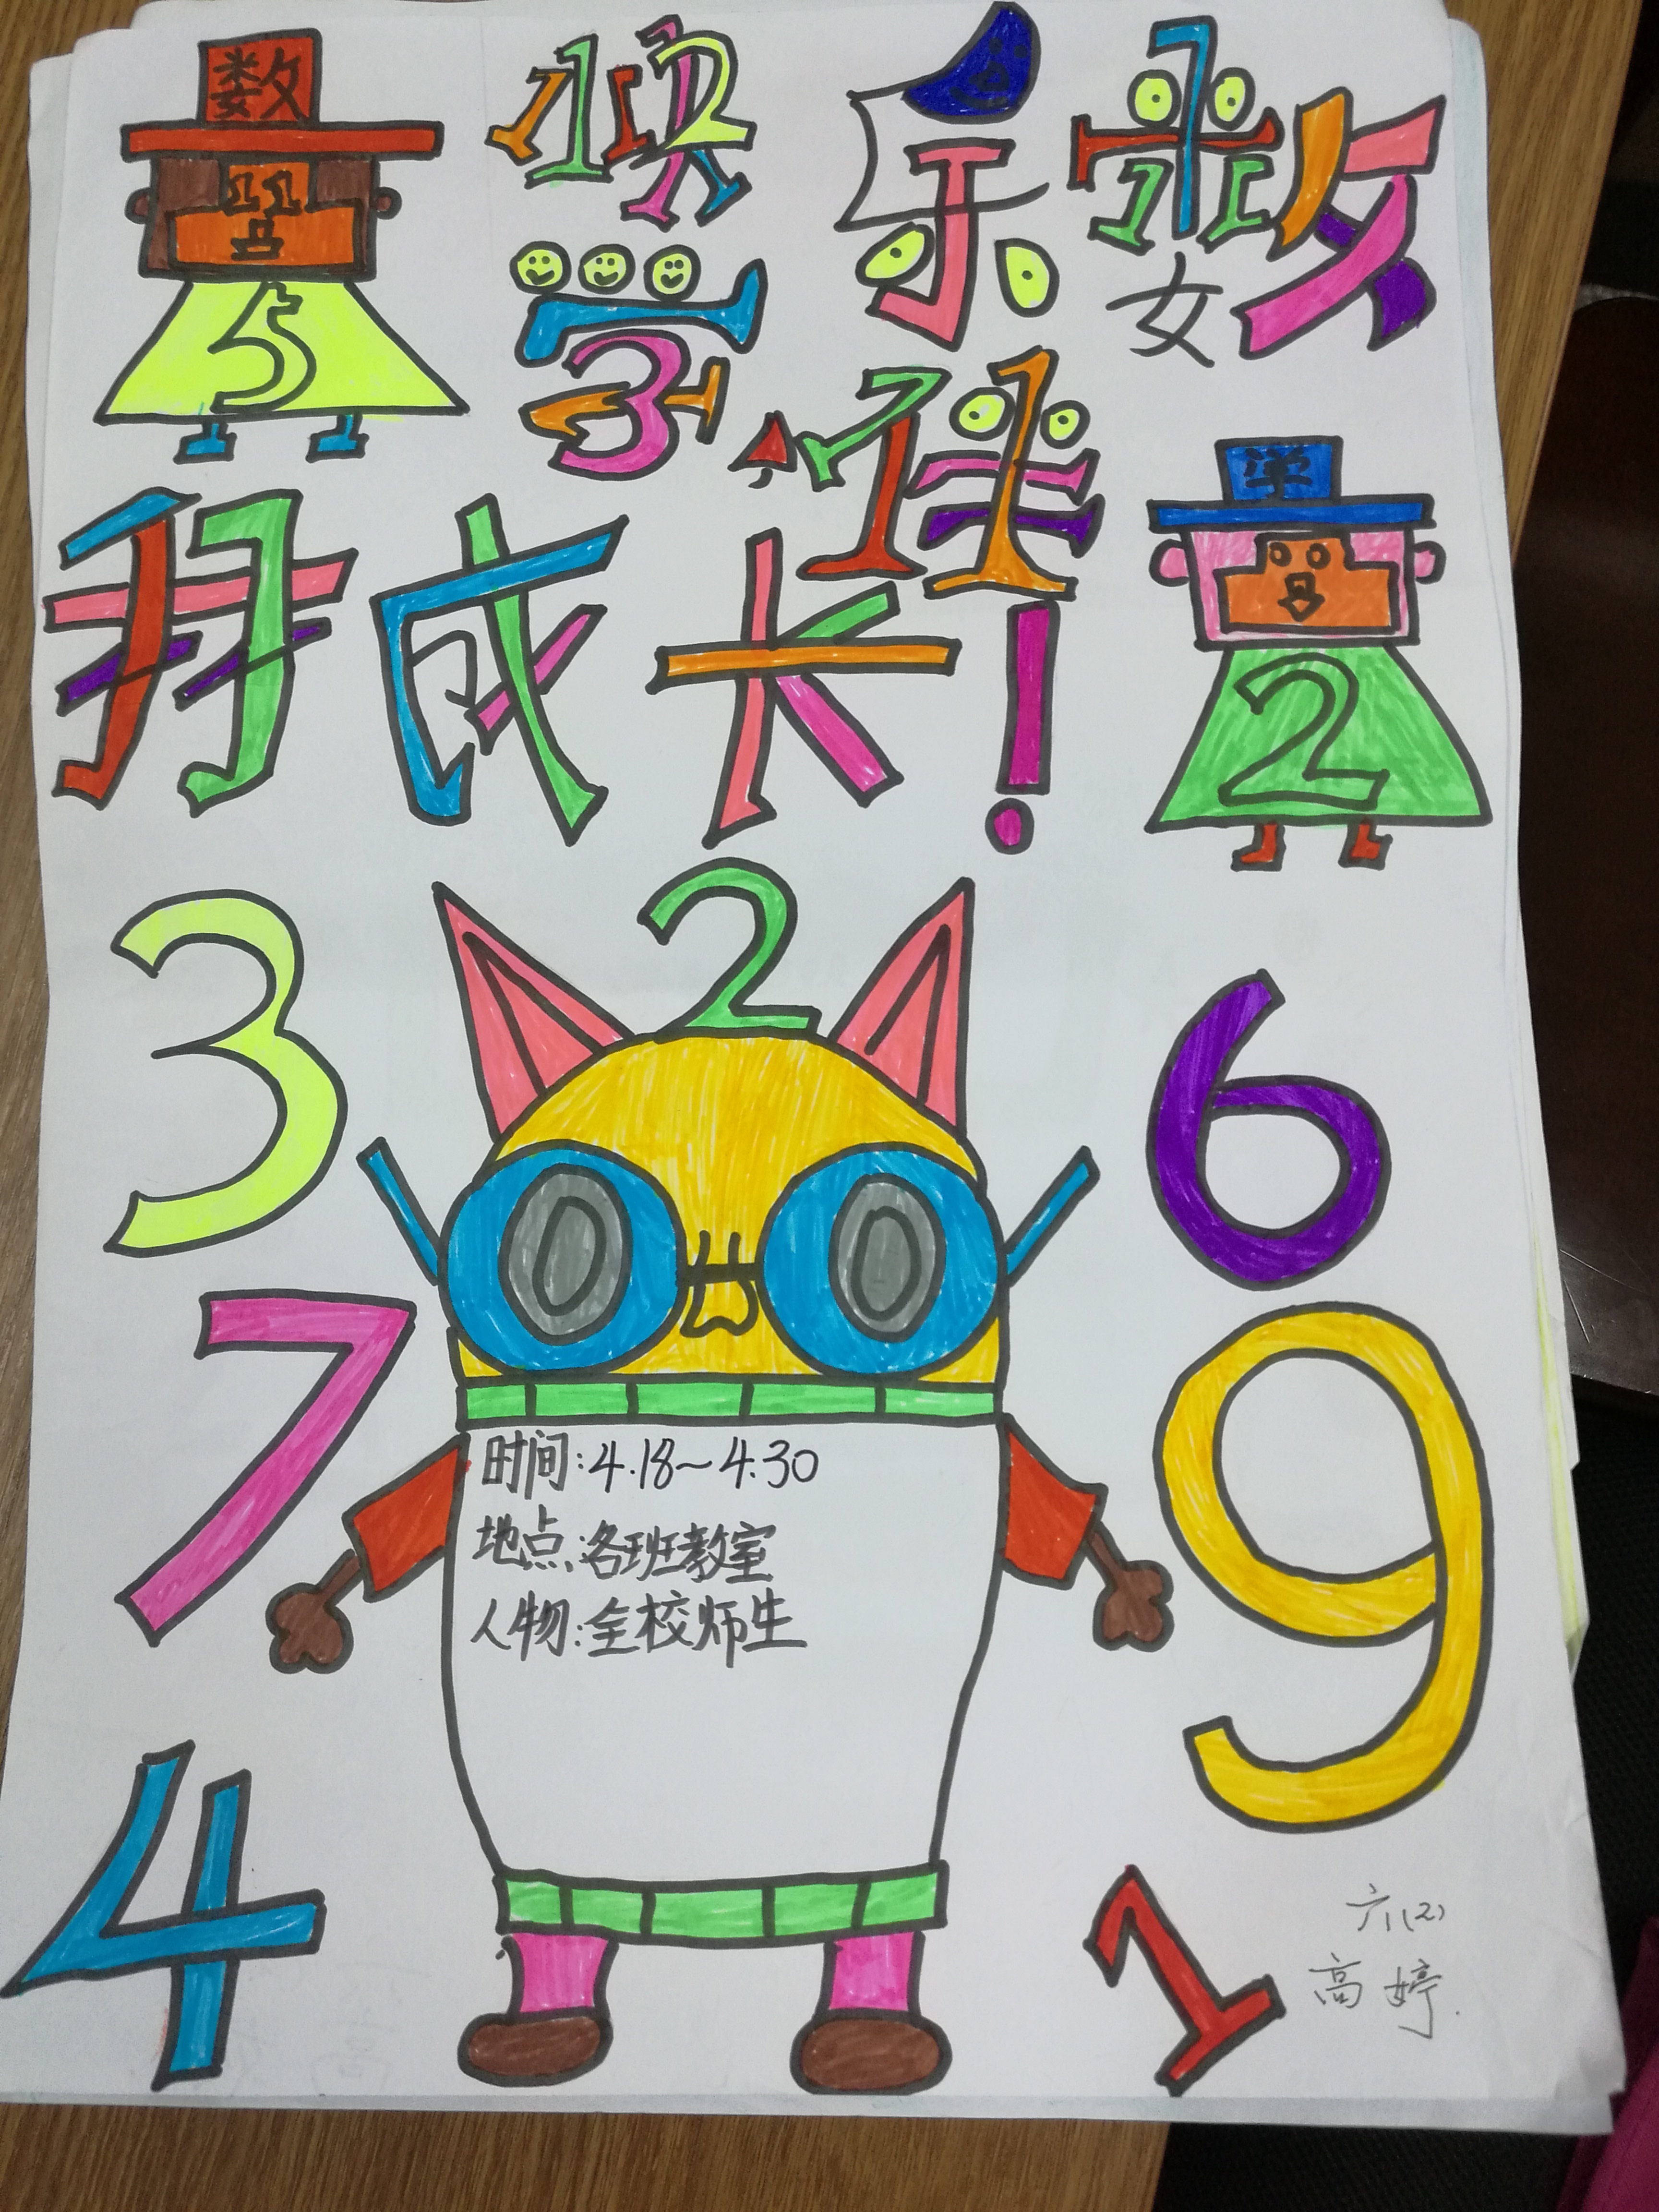 数
快乐数
5
学
伴
学
我成长!
2
3
2
6
7
9
0 0
时间:4.18~4.30
地点:各班教室
人物:全校师生
4
1
六(2)
高婷.